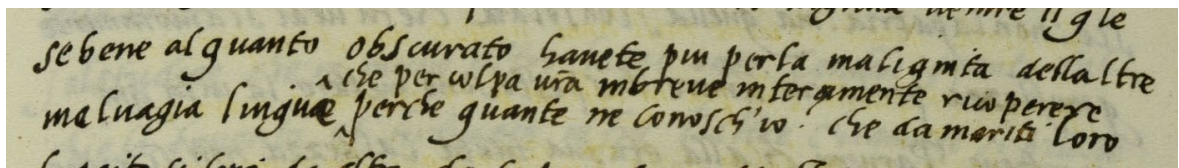 venire il q̃le
se bene alquanto obscurato havete piu per la malignita dellaltre
che per colpa vr̃a inbreve interamente ricoperere
malvagia lingue perche quante ne conosch'io · che da mariti loro